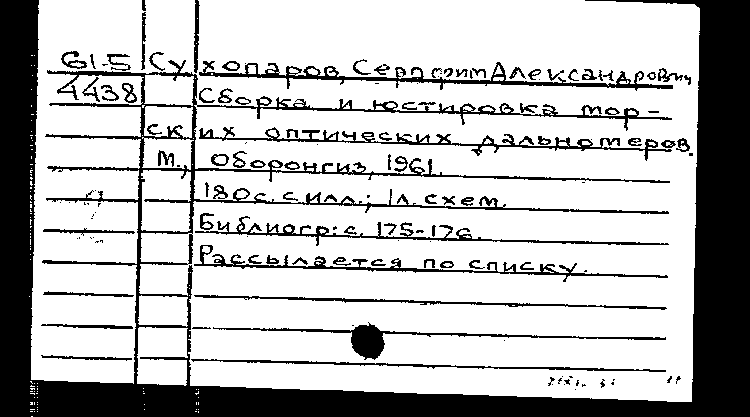 61-5 Сухопаров, Серафим Александрович
4438 Сборка и юстировка мор-
ских оптических дальномеров.
М., Оборонгиз, 1961.
180с. с илл.; 1л. схем.
Библиогр: с. 175-176.
Рассылается по списку.